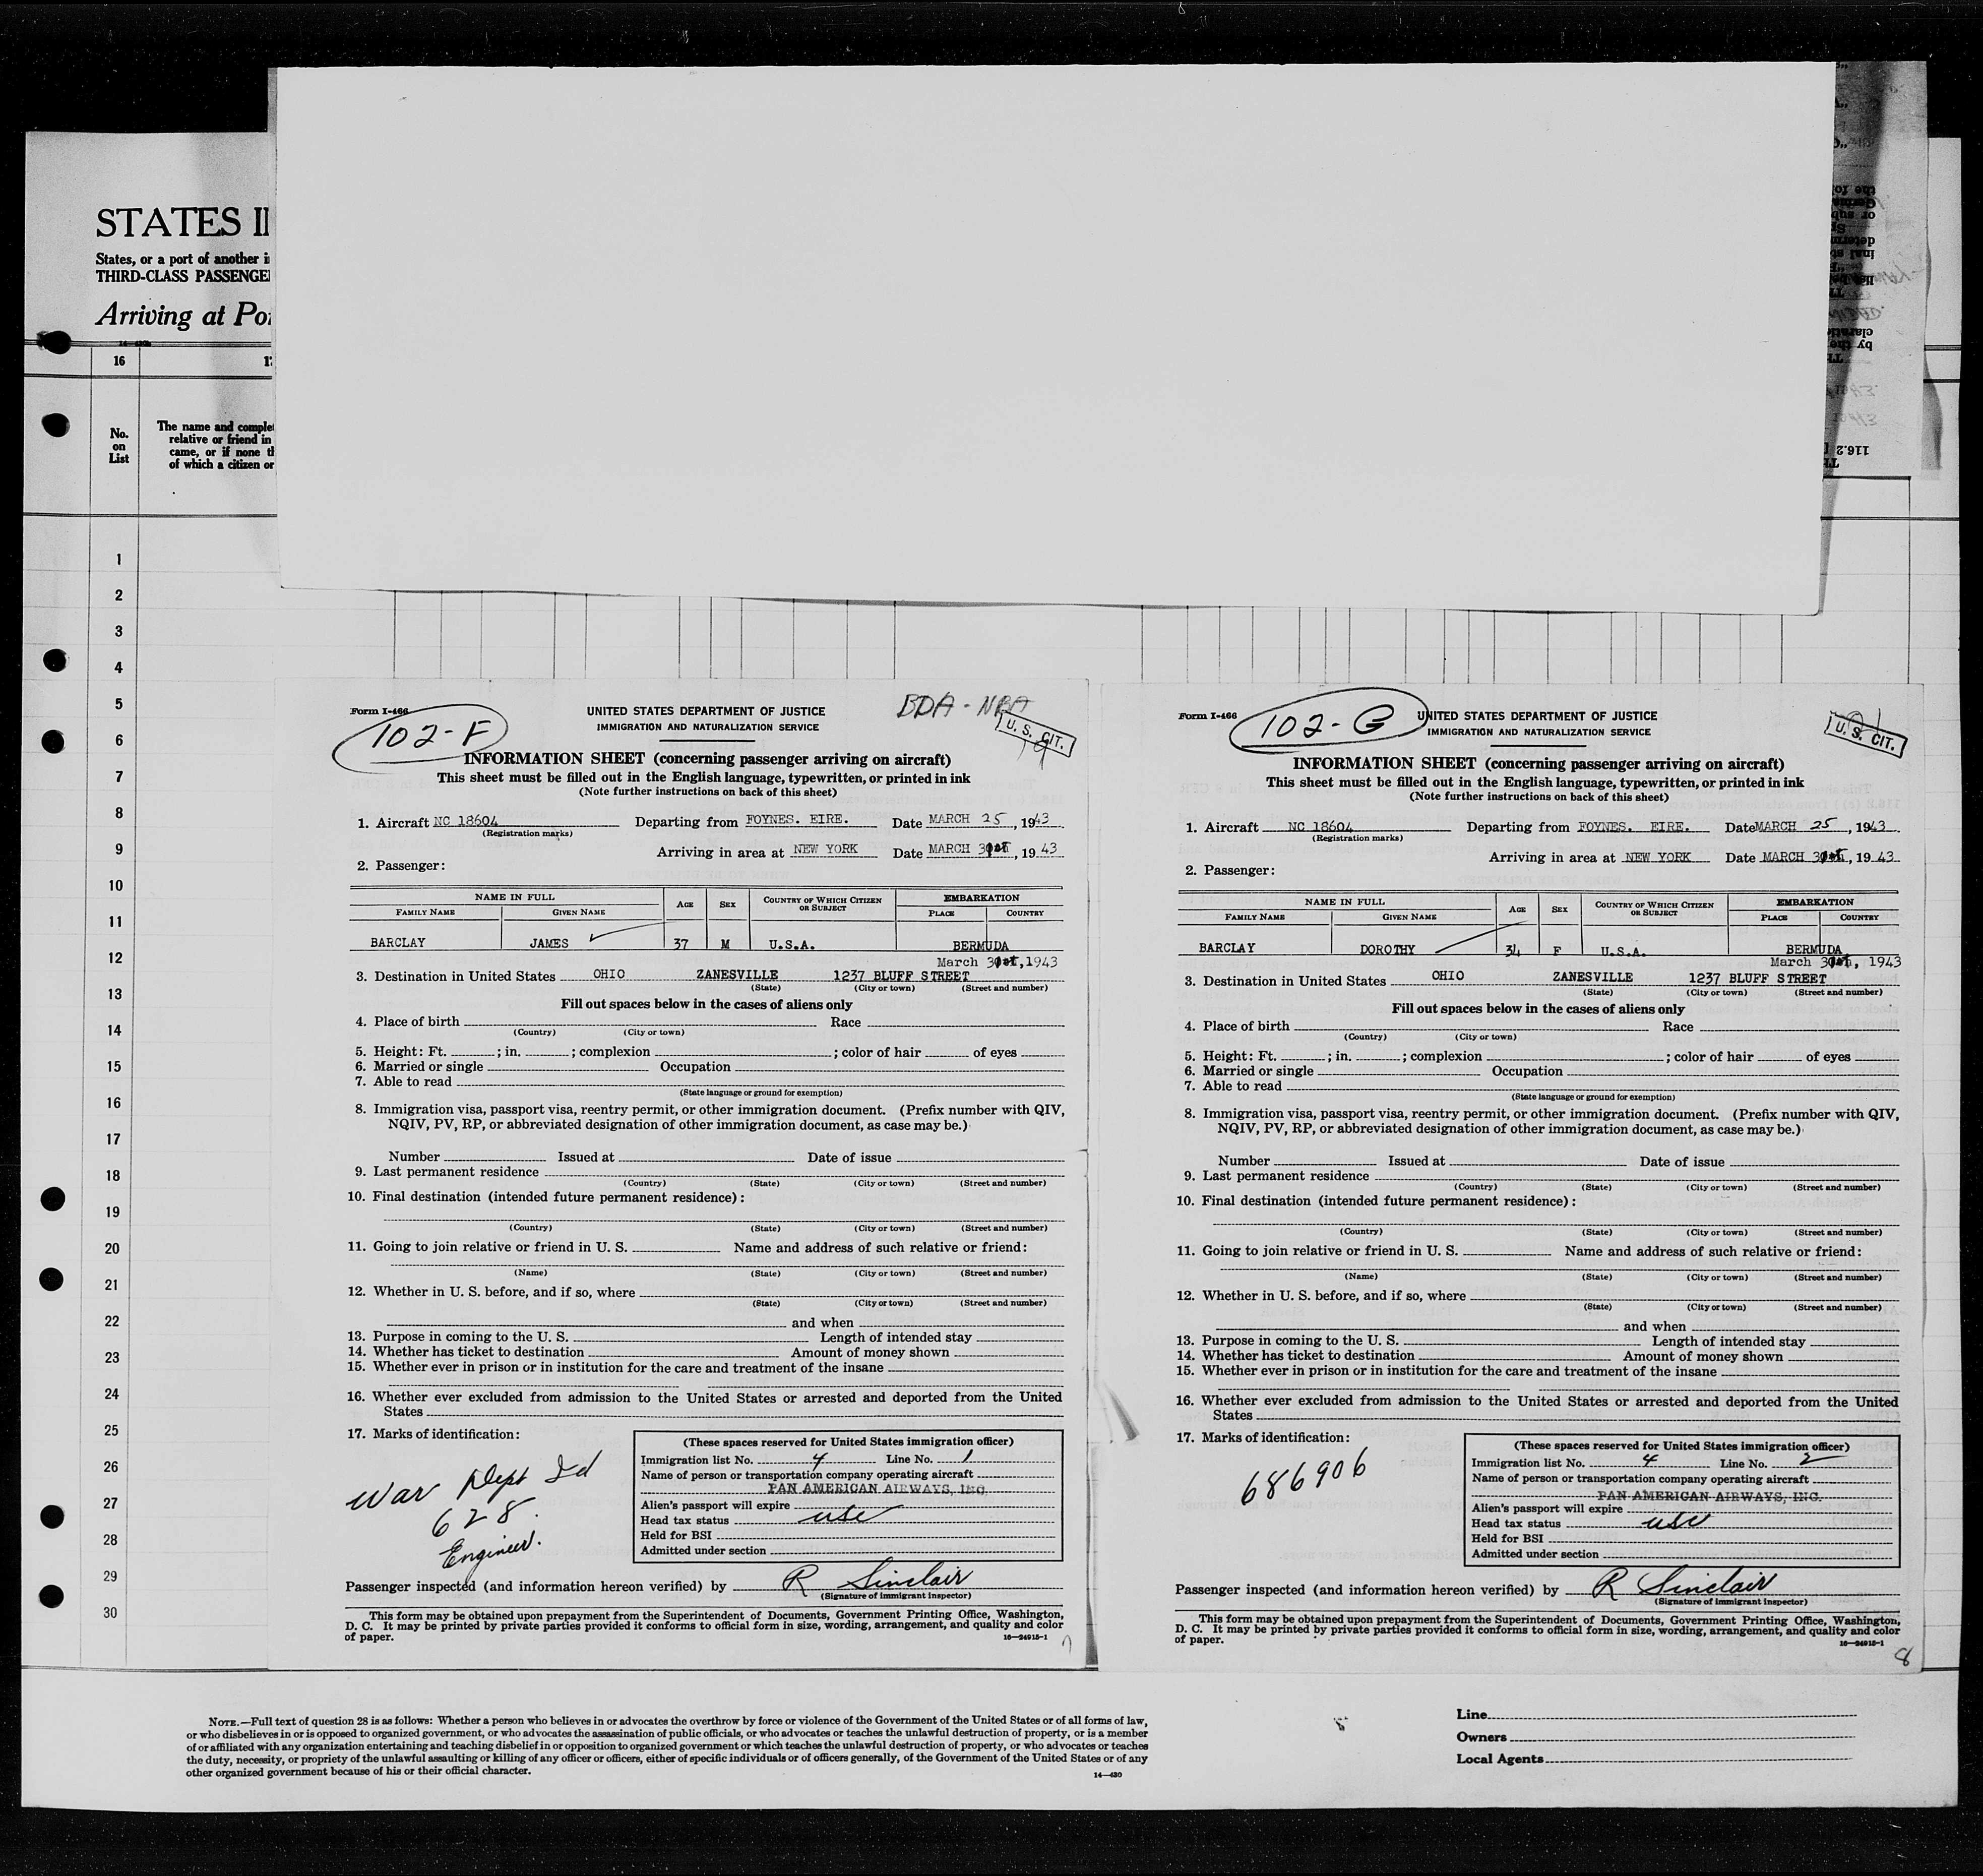 STATES I
States, or a port of another i
THIRD-CLASS PASSENGE
Arriving at Po
16
No.
on
List
The name and comple
relative or friend in
came, or if none t
of which a citizen or
1
2
3
4
5
6
7
8
9
10
11
12
13
14
15
16
17
18
19
20
21
22
23
24
25
26
27
28
29
30
Form I-466
102-F
UNITED STATES DEPARTMENT OF JUSTICE
IMMIGRATION AND NATURALIZATION SERVICE
BDA - NBA
U. S. CIT.
INFORMATION SHEET (concerning passenger arriving on aircraft)
This sheet must be filled out in the English language, typewritten, or printed in ink
(Note further instructions on back of this sheet)
1. Aircraft NC 18604 Departing from FOYNES. EIRE. Date MARCH 25, 1943
(Registration marks)
Arriving in area at NEW YORK Date MARCH 31st, 1943
2. Passenger:
NAME IN FULL AGE SEX COUNTRY OF WHICH CITIZEN OR SUBJECT EMBARKATION
FAMILY NAME GIVEN NAME PLACE COUNTRY
BARCLAY JAMES 37 M U.S.A. BERMUDA
March 31st, 1943
3. Destination in United States OHIO ZANESVILLE 1237 BLUFF STREET
(State) (City or town) (Street and number)
Fill out spaces below in the cases of aliens only
4. Place of birth Race
(Country) (City or town)
5. Height: Ft. ; in. ; complexion ; color of hair of eyes
6. Married or single Occupation
7. Able to read
(State language or ground for exemption)
8. Immigration visa, passport visa, reentry permit, or other immigration document. (Prefix number with QIV,
NQIV, PV, RP, or abbreviated designation of other immigration document, as case may be.)
Number Issued at Date of issue
9. Last permanent residence
(Country) (State) (City or town) (Street and number)
10. Final destination (intended future permanent residence):
(Country) (State) (City or town) (Street and number)
11. Going to join relative or friend in U. S. Name and address of such relative or friend:
(Name) (State) (City or town) (Street and number)
12. Whether in U. S. before, and if so, where
(State) (City or town) (Street and number)
and when
13. Purpose in coming to the U. S. Length of intended stay
14. Whether has ticket to destination Amount of money shown
15. Whether ever in prison or in institution for the care and treatment of the insane
16. Whether ever excluded from admission to the United States or arrested and deported from the United
States
17. Marks of identification:
War Dept Id
628.
Engineer.
(These spaces reserved for United States immigration officer)
Immigration list No. 4 Line No. 1
Name of person or transportation company operating aircraft
PAN AMERICAN AIRWAYS, INC.
Alien's passport will expire
Head tax status usc
Held for BSI
Admitted under section
Passenger inspected (and information hereon verified) by R Sinclair
(Signature of immigrant inspector)
This form may be obtained upon prepayment from the Superintendent of Documents, Government Printing Office, Washington,
D. C. It may be printed by private parties provided it conforms to official form in size, wording, arrangement, and quality and color
of paper.
16—24915-1
7
Form I-466
102-G
UNITED STATES DEPARTMENT OF JUSTICE
IMMIGRATION AND NATURALIZATION SERVICE
U. S. CIT.
INFORMATION SHEET (concerning passenger arriving on aircraft)
This sheet must be filled out in the English language, typewritten, or printed in ink
(Note further instructions on back of this sheet)
1. Aircraft NC 18604 Departing from FOYNES. EIRE. Date MARCH 25, 1943
(Registration marks)
Arriving in area at NEW YORK Date MARCH 31st, 1943
2. Passenger:
NAME IN FULL AGE SEX COUNTRY OF WHICH CITIZEN OR SUBJECT EMBARKATION
FAMILY NAME GIVEN NAME PLACE COUNTRY
BARCLAY DOROTHY 34 F U.S.A. BERMUDA
March 31st, 1943
3. Destination in United States OHIO ZANESVILLE 1237 BLUFF STREET
(State) (City or town) (Street and number)
Fill out spaces below in the cases of aliens only
4. Place of birth Race
(Country) (City or town)
5. Height: Ft. ; in. ; complexion ; color of hair of eyes
6. Married or single Occupation
7. Able to read
(State language or ground for exemption)
8. Immigration visa, passport visa, reentry permit, or other immigration document. (Prefix number with QIV,
NQIV, PV, RP, or abbreviated designation of other immigration document, as case may be.)
Number Issued at Date of issue
9. Last permanent residence
(Country) (State) (City or town) (Street and number)
10. Final destination (intended future permanent residence):
(Country) (State) (City or town) (Street and number)
11. Going to join relative or friend in U. S. Name and address of such relative or friend:
(Name) (State) (City or town) (Street and number)
12. Whether in U. S. before, and if so, where
(State) (City or town) (Street and number)
and when
13. Purpose in coming to the U. S. Length of intended stay
14. Whether has ticket to destination Amount of money shown
15. Whether ever in prison or in institution for the care and treatment of the insane
16. Whether ever excluded from admission to the United States or arrested and deported from the United
States
17. Marks of identification:
686906
(These spaces reserved for United States immigration officer)
Immigration list No. 4 Line No. 2
Name of person or transportation company operating aircraft
PAN AMERICAN AIRWAYS, INC.
Alien's passport will expire
Head tax status usc
Held for BSI
Admitted under section
Passenger inspected (and information hereon verified) by R Sinclair
(Signature of immigrant inspector)
This form may be obtained upon prepayment from the Superintendent of Documents, Government Printing Office, Washington,
D. C. It may be printed by private parties provided it conforms to official form in size, wording, arrangement, and quality and color
of paper.
16—24915-1
8
NOTE.—Full text of question 28 is as follows: Whether a person who believes in or advocates the overthrow by force or violence of the Government of the United States or of all forms of law,
or who disbelieves in or is opposed to organized government, or who advocates the assassination of public officials, or who advocates or teaches the unlawful destruction of property, or is a member
of or affiliated with any organization entertaining and teaching disbelief in or opposition to organized government or which teaches the unlawful destruction of property, or who advocates or teaches
the duty, necessity, or propriety of the unlawful assaulting or killing of any officer or officers, either of specific individuals or of officers generally, of the Government of the United States or of any
other organized government because of his or their official character.
14—430
Line
Owners
Local Agents